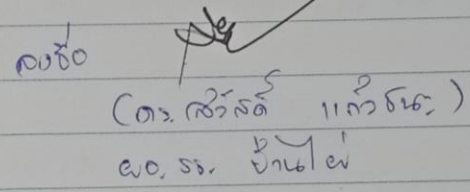 ลงชื่อ
(ดร. สวัสดิ์ แก้วชนะ)
ผอ. รร. บ้านไผ่